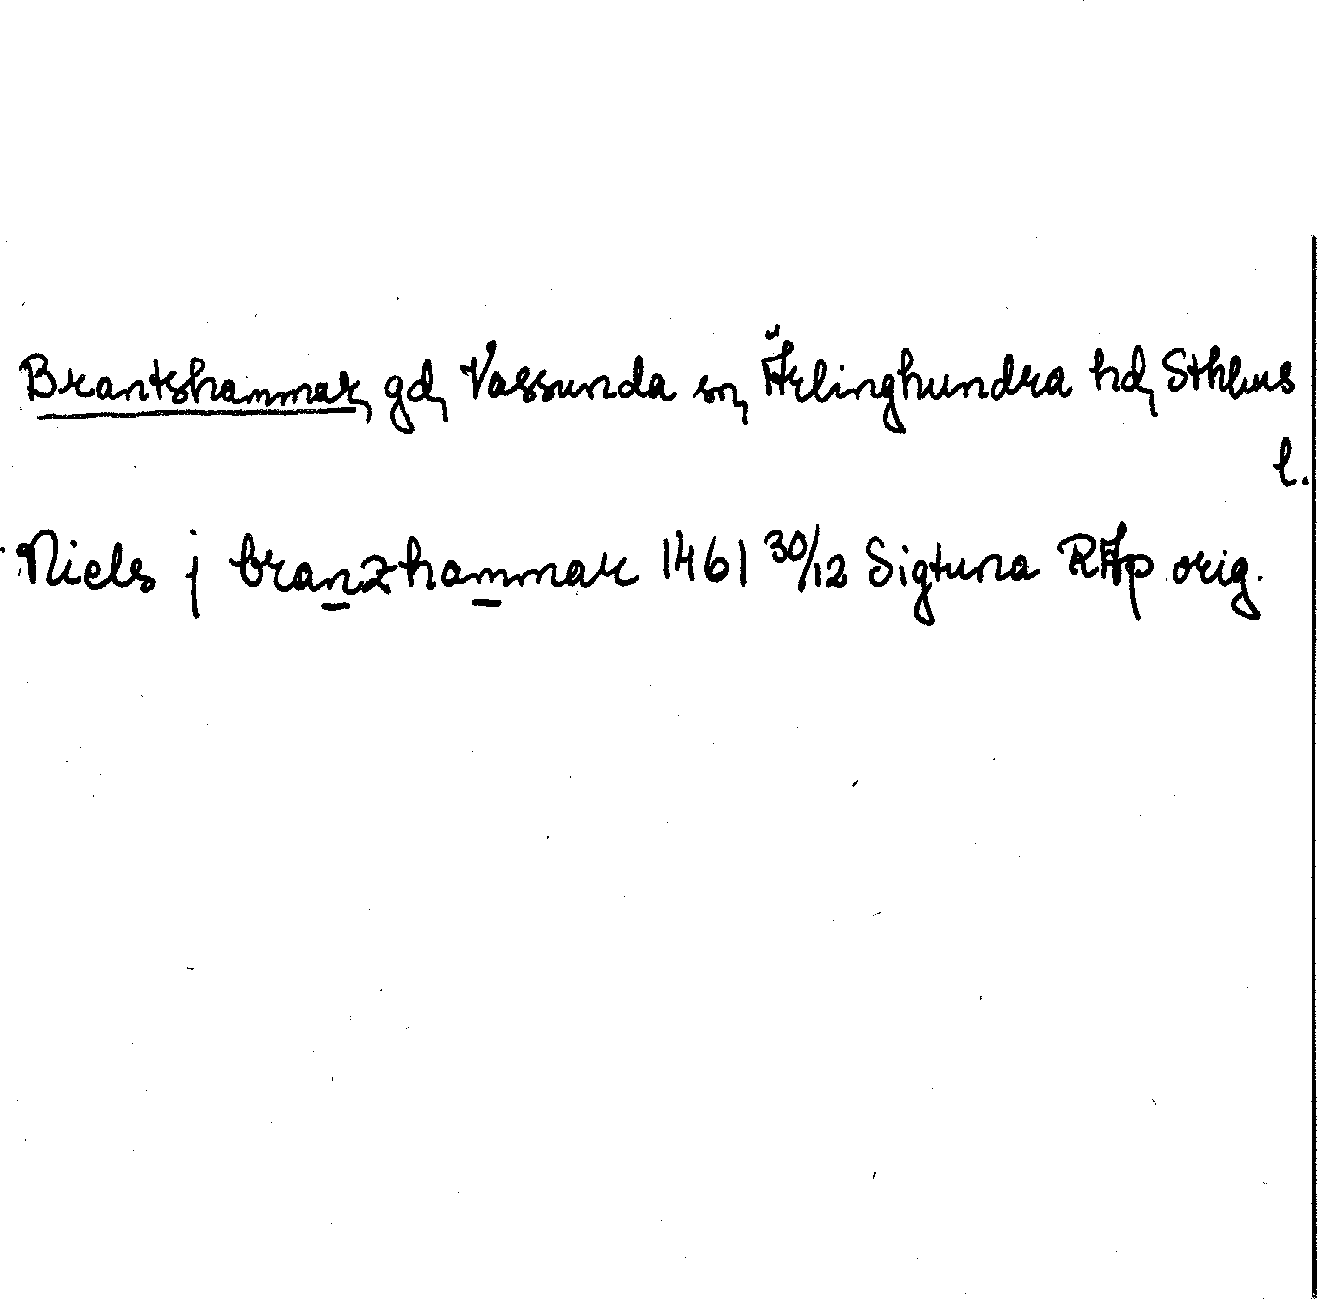 Brantshammar, gd, Vassunda sn, Ärlinghundra hd, Sthlms
l.
Niels j branzhammar 1461 30/12 Sigtuna RAp orig.